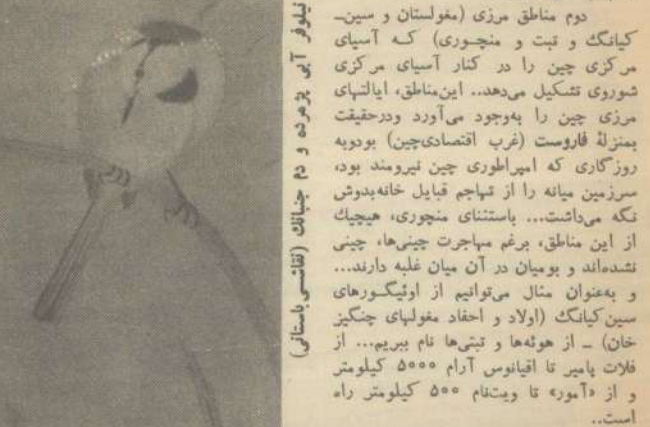 دوم مناطق مرزی (مغولستان و سین‌ـ
کیانگ و تبت و منچوری) که آسیای
مرکزی چین را در کنار آسیای مرکزی
شوروی تشکیل می‌دهد.. این‌مناطق، ایالتهای
مرزی چین را به‌وجود می‌آورد ودرحقیقت
بمنزلهٔ فاروست (غرب اقتصادی‌چین) بودوبه
روزگاری که امپراطوری چین نیرومند بود،
سرزمین میانه را از تهاجم قبایل خانه‌بدوش
نگه می‌داشت... باستثنای منچوری، هیچیک
از این مناطق، برغم مهاجرت چینی‌ها، چینی
نشده‌اند و بومیان در آن میان غلبه دارند...
و به‌عنوان مثال می‌توانیم از اوئیگورهای
سین‌کیانگ (اولاد و احفاد مغولهای چنگیز
خان) ـ از هوئه‌ها و تبتی‌ها نام ببریم... از
فلات پامیر تا اقیانوس آرام ۵۰۰۰ کیلومتر
و از «آمور» تا ویت‌نام ۵۰۰ کیلومتر راه
است..
نیلوفر آبی پژمرده و دم جنبانک (نقاشی باستانی)